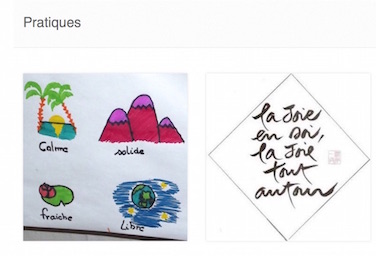 Pratiques
Calme
solide
fraîche
Libre
la Joie
en soi,
la Joie
tout
autour